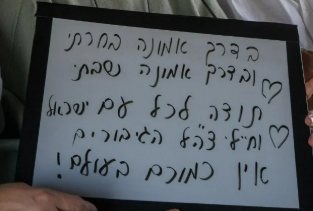 בדרך אמונה בחרתי
ובדרך אמונה נשבתי
תודה לכל עם ישראל
וחיילי צה"ל הגיבורים
אין כמוכם בעולם!